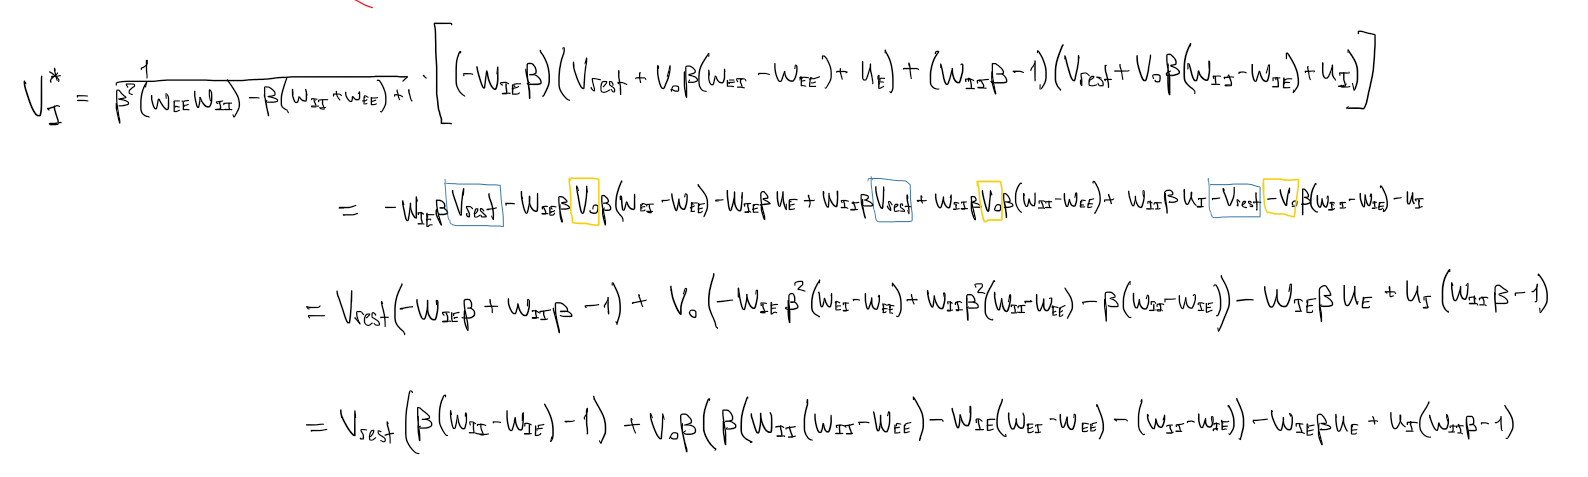 V_I^* = 1/(β²(W_EE W_II) - β(W_II + W_EE) + 1) · [(-W_IE β)(V_rest + V_0 β(W_EI - W_EE) + U_E) + (W_II β - 1)(V_rest + V_0 β(W_II - W_IE) + U_I)]
= -W_IE β V_rest - W_IE β V_0 β(W_EI - W_EE) - W_IE β U_E + W_II β V_rest + W_II β V_0 β(W_II - W_EE) + W_II β U_I - V_rest - V_0 β(W_II - W_IE) - U_I
= V_rest(-W_IE β + W_II β - 1) + V_0 (-W_IE β²(W_EI - W_EE) + W_II β²(W_II - W_EE) - β(W_II - W_IE)) - W_IE β U_E + U_I (W_II β - 1)
= V_rest (β(W_II - W_IE) - 1) + V_0 β(β(W_II (W_II - W_EE) - W_IE(W_EI - W_EE) - (W_II - W_IE)) - W_IE β U_E + U_I(W_II β - 1)